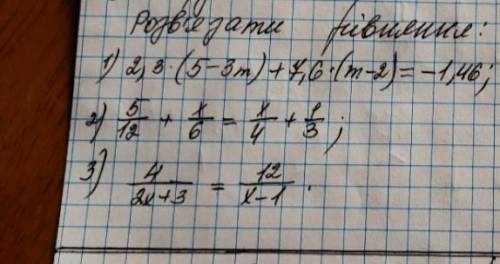 Розвʼязати рівняння:
1) 2,3·(5-3m)+7,6·(m-2)=-1,46;
2) 5/12 + x/6 = x/4 + 1/3;
3) 4/(2x+3) = 12/(x-1).